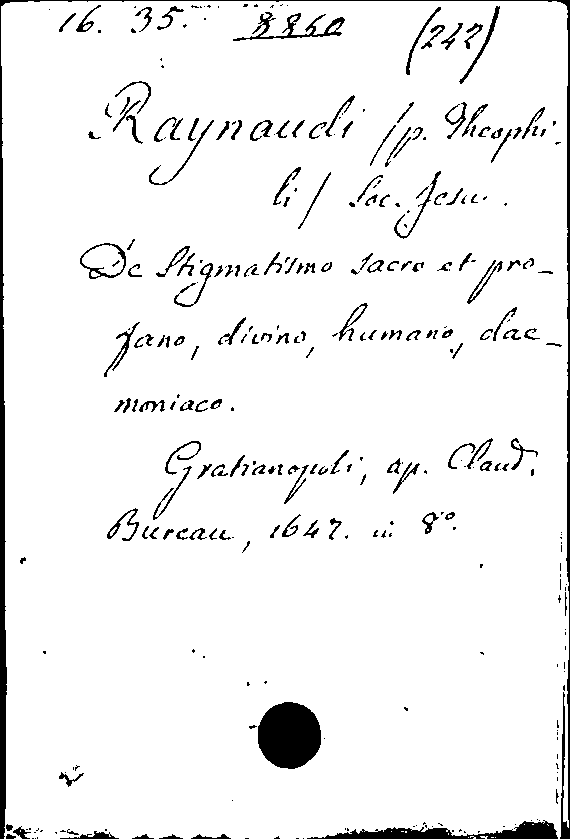 16. 35. 8860 (242)
Raynaudi /p. Theophi-
li/ Soc. Jesu.
De Stigmatismo sacro et pro-
fano, divino, humano, dae-
moniaco.
Gratianopoli, ap. Claud.
Bureau, 1647. in 8°.